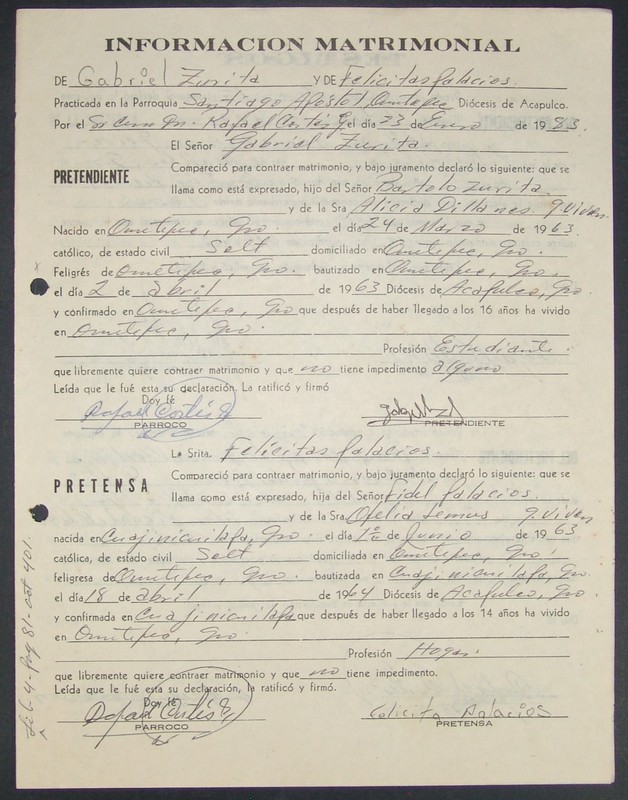 INFORMACION MATRIMONIAL
DE Gabriel Zurita Y DE Felicitas Palacios.
Practicada en la Parroquia Santiago Apostol Ometepec Diócesis de Acapulco.
Por el Sr Cura Dn. Rafael Cortés G el día 23 de Enero de 1983.
El Señor Gabriel Zurita.
PRETENDIENTE
Compareció para contraer matrimonio, y bajo juramento declaró lo siguiente: que se
llama como está expresado, hijo del Señor Bartolo Zurita
y de la Sra Alicia Dillanes q. viven
Nacido en Ometepec, Gro. el día 24 de Marzo de 1963.
católico, de estado civil Solt domiciliado en Ometepec, Gro.
Feligrés de Ometepec, Gro. bautizado en Ometepec, Gro.
el día 2 de abril de 1963 Diócesis de Acapulco, Gro
y confirmado en Ometepec, Gro que después de haber llegado a los 16 años ha vivido
en Ometepec, Gro.
Profesión Estudiante.
que libremente quiere contraer matrimonio y que no tiene impedimento alguno
Leída que le fué esta su declaración. La ratificó y firmó
Doy fé
Rafael Cortés G
PARROCO
PRETENDIENTE
La Srita. Felicitas Palacios.
PRETENSA
Compareció para contraer matrimonio, y bajo juramento declaró lo siguiente: que se
llama como está expresado, hija del Señor Fidel Palacios.
y de la Sra. Ofelia Lemus q. viven
nacida en Cuajinicuilapa, Gro. el día 1o de Junio de 1963
católica, de estado civil Solt domiciliada en Ometepec, Gro.
feligresa de Ometepec, Gro. bautizada en Cuajinicuilapa, Gro.
el día 18 de abril de 1964 Diócesis de Acapulco, Gro
y confirmada en Cuajinicuilapa que después de haber llegado a los 14 años ha vivido
en Ometepec, Gro.
Profesión Hogar.
que libremente quiere contraer matrimonio y que no tiene impedimento.
Leída que le fué esta su declaración, la ratificó y firmó.
Doy fé
Rafael Cortés G
PARROCO
Felicita Palacios
PRETENSA
Lib-4-Pag 81-act 401.